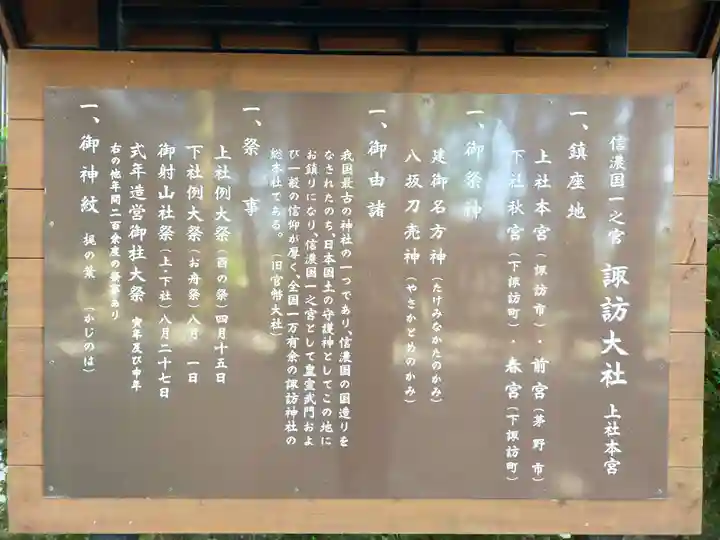 信濃国一之宮 諏訪大社 上社本宮
一、鎮座地
上社本宮(諏訪市)・前宮(茅野市)
下社秋宮(下諏訪町)・春宮(下諏訪町)
一、御祭神
建御名方神(たけみなかたのかみ)
八坂刀売神(やさかとめのかみ)
一、御由諸
我国最古の神社の一つであり、信濃国の国造りを
なされたのち、日本国土の守護神としてこの地に
お鎮りになり、信濃国一之宮として皇室武門およ
び一般の信仰が厚く、全国一万有余の諏訪神社の
総本社である。(旧官幣大社)
一、祭事
上社例大祭(酉の祭)四月十五日
下社例大祭(お舟祭)八月 一日
御射山社祭(上・下社)八月二十七日
式年造営御柱大祭 寅年及び申年
右の他年間二百余度の祭事あり
一、御神紋 梶の葉 (かじのは)